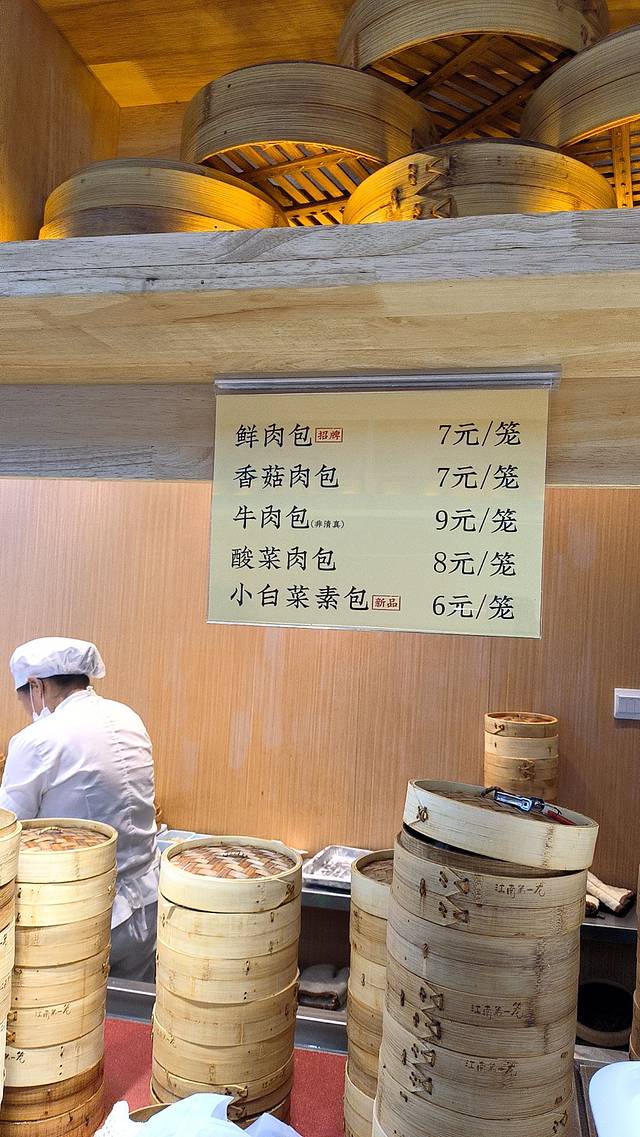 鲜肉包 招牌 7元/笼
香菇肉包 7元/笼
牛肉包(非清真) 9元/笼
酸菜肉包 8元/笼
小白菜素包 新品 6元/笼
江南第一笼
江南第一笼
江南第一笼
江南第一笼